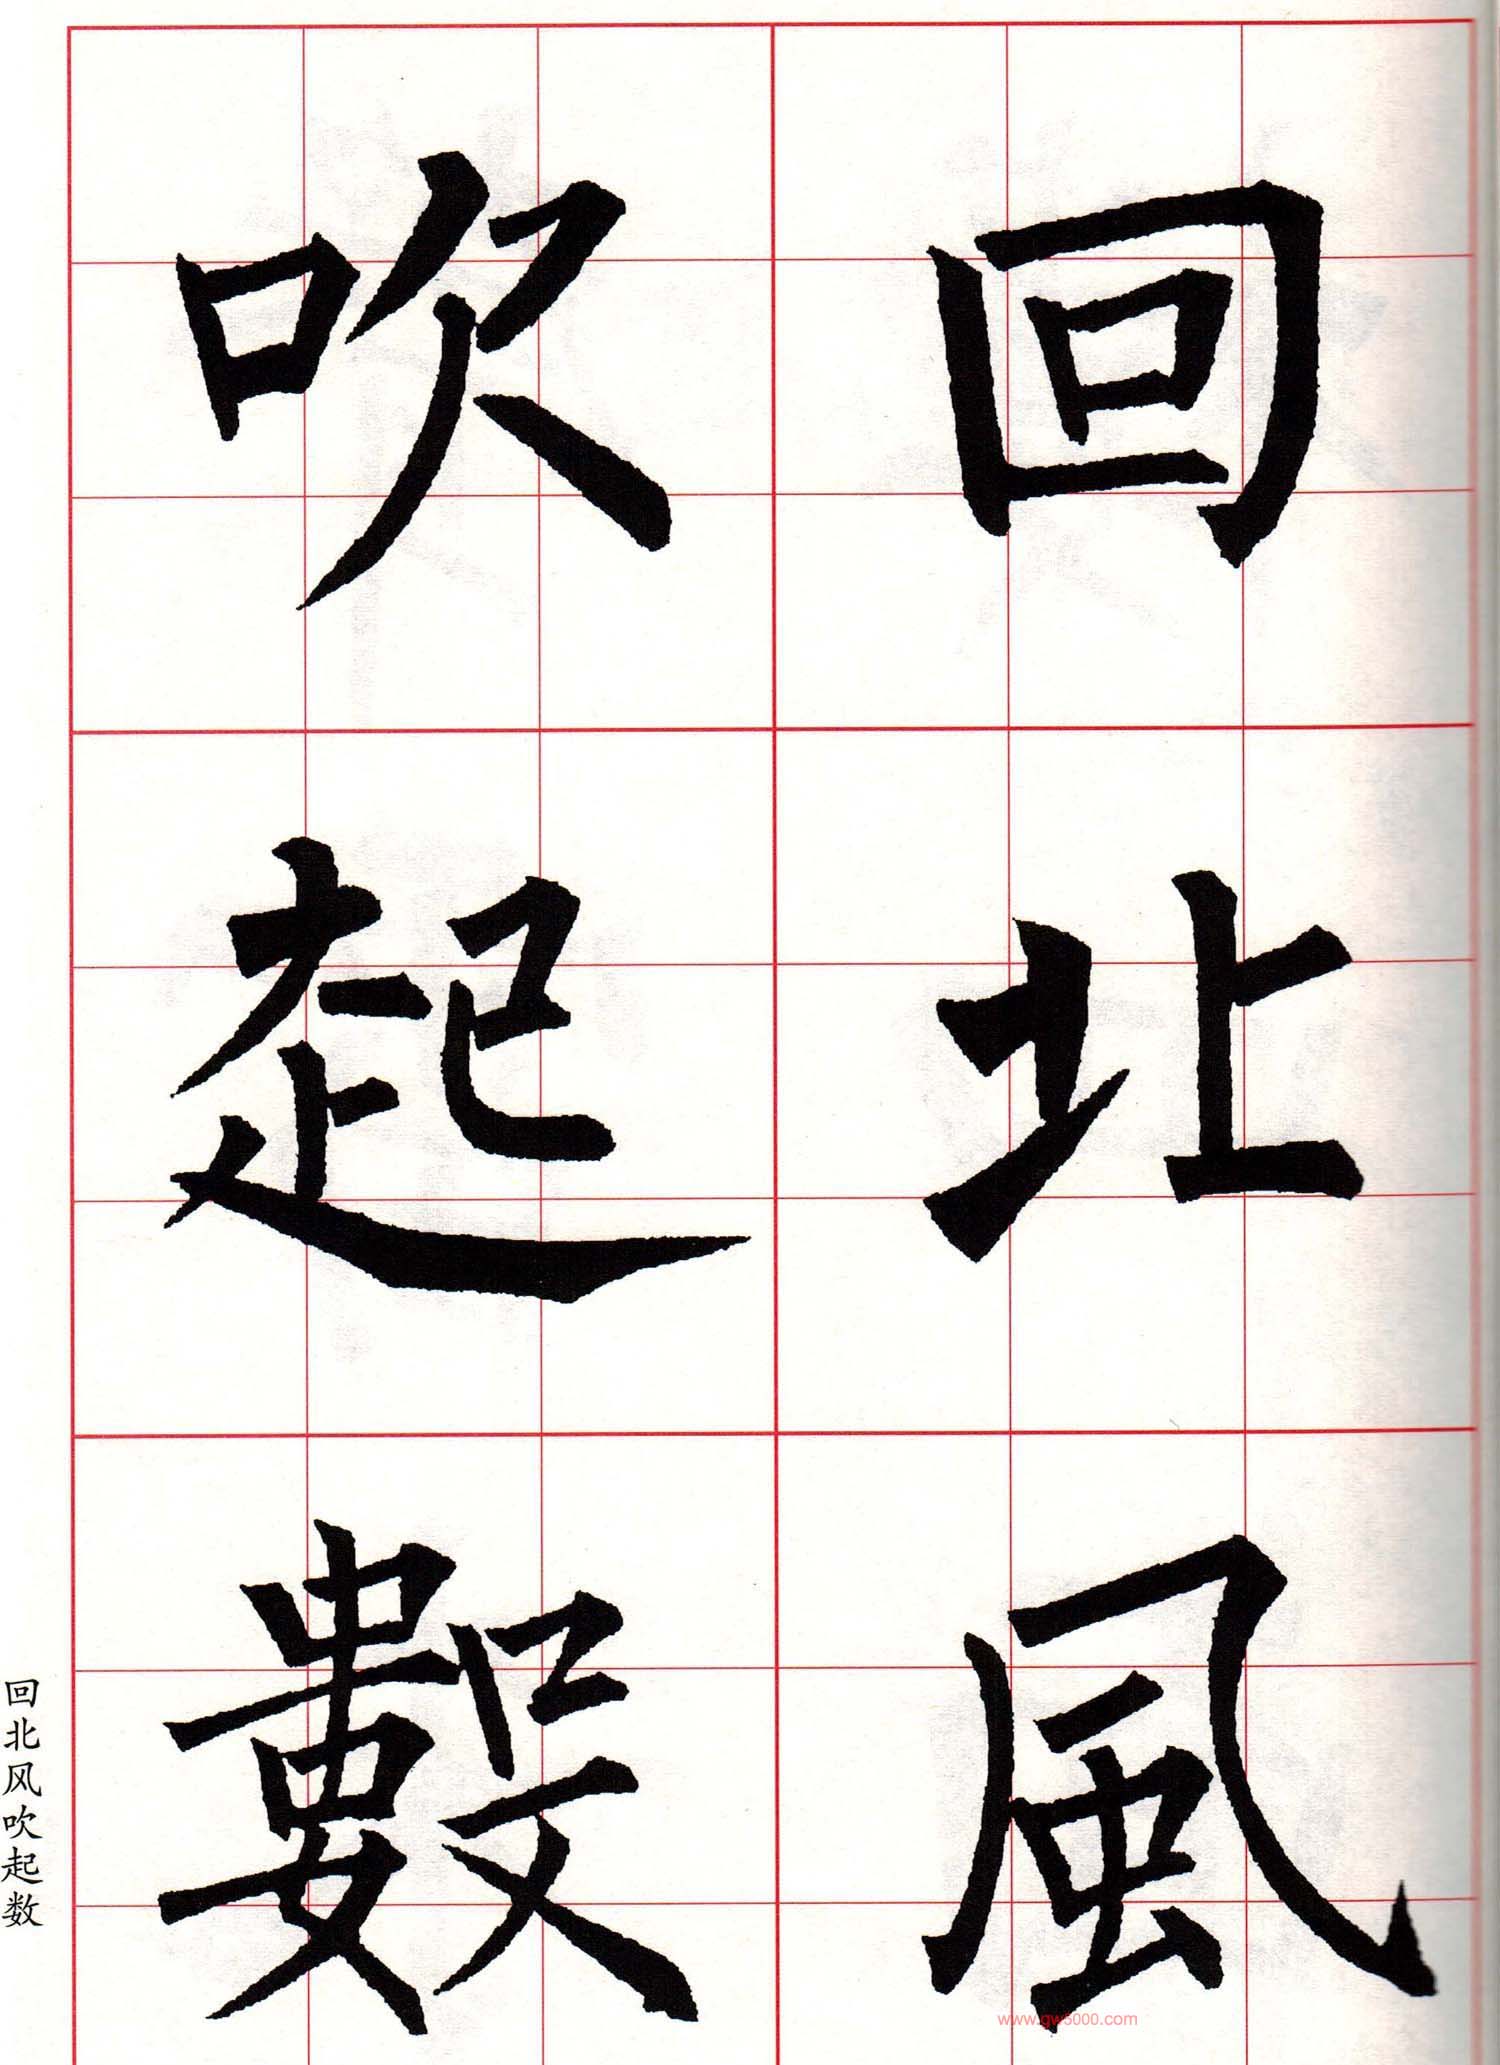 回北風
吹起數
回北风吹起数
www.gw5000.com